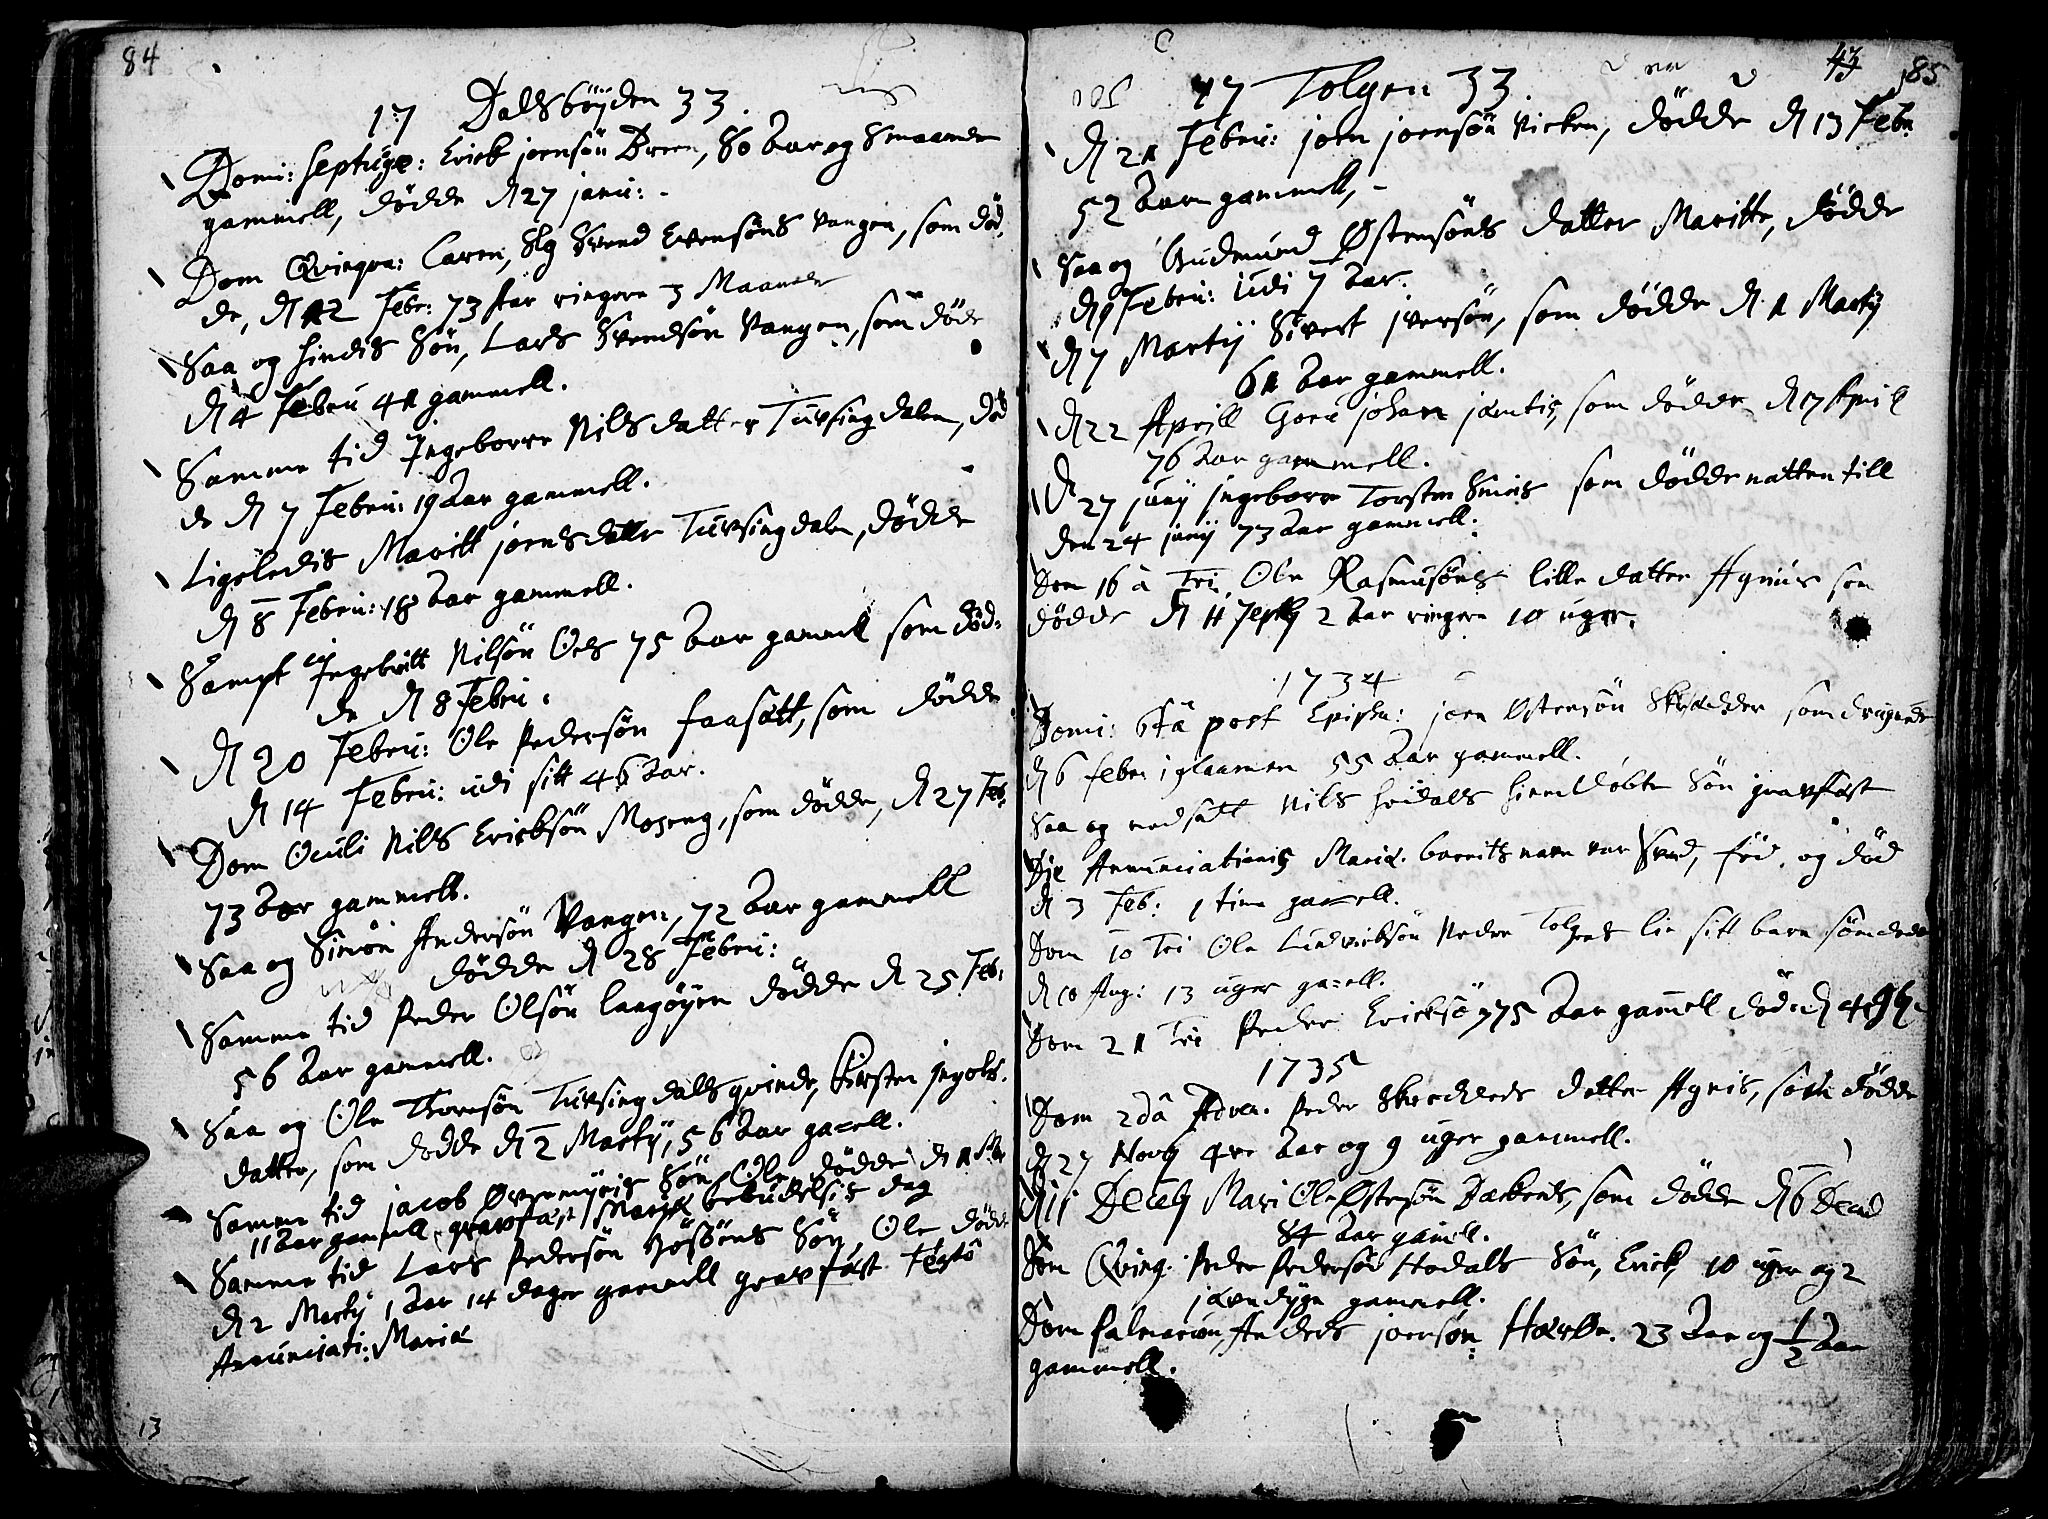 84
17 Dalsbøyden 33.
Domi: Septuge: Erick joensön Breen, 80 Aar og 8 maaneder
gammell, dödde d 27 janu:
Dom Qvinqva: Caren, Sl Svend Evensöns Vangen, som död-
de, d 12 Febr: 73 Aar ringere 3 Maaneder
Saa og hindis Sön, Lars Svendsön Vangen, som döde
d 4 Febru 41 gammell.
Samme tid Ingeborre Nilsdatter Tufsingdalen, död
de d 7 Febru: 19 Aar gammell.
Ligeledis Maritt joensdatter Tufsingdalen, dödde
d 8 Febru: 18 Aar gammell.
Sampt Ingebritt Nilsön Oes 75 Aar gammell som död-
de d 8 Febru:
d 20 Febru: Ole Pedersön faasätt, som dödde
d 14 Febru: udi sitt 46 Aar.
Dom Oculi Nils Ericksön Moseng, som dödde, d 27 Feb:
73 Aar gammell.
Saa og Simön Andersön Vangen, 72 Aar gammell
dödde d 28 Febru:
Samme tid Peder Olsön Langøyen dödde d 25 Feb:
56 Aar gammell.
Saa og Ole Thoresön Tufsingdals qvinde, Kirsten Ingols-
datter, som dödde d 2 Martij, 56 Aar ga=ell.
Samme tid jacob Øvermyris Sön Ole dödde d 11
11 Aar gammell gravfäst Mariæ bebudelsis dag
Samme tid Lars Pedersön Sön, Ole dödde
d 2 Martij 1 Aar 14 dager gammell gravfäst Festo
Annunciati: Mariæ
13
43
85
17 Tolgen 33.
d 21 Febru: joen joensön Vicken, dödde d 13 Febr:
52 Aar gammell,
Saa og Gudmund Østensöns datter Maritte, dödde
d 9 Febru: udi 7 Aar.
d 7 Martij Sivert jversön, som dödde d 1 Martij
61 Aar gammell.
d 22 Aprill Gorü johan jæmtis, som dödde d 17 April
76 Aar gammell.
d 27 junij Ingeborre Torsten Smeis som dödde natten till
den 24 junij 73 Aar gammell.
Dom 16 à Tri. Ole Rasmusöns lille datter Agnus som
dödde d 11 Septbr 2 Aar ringere 10 uger.
1734
Domi: 6tâ post Epipha: joen Østensön Skrædder som drugnede
d 6 febr: i glaamen 55 Aar gammell.
Saa og nedsatt Nils Hodals hiemdöbte Sön gravfæst
Die Annunciationis Mariæ. barnits navn var Svend, föd. og död
d 3 Feb: 1 time ga=ell.
Dom 10 Tri Ole Ludvicksön Nedre Tolgens lie sitt barn som döde
d 10 Aug: 13 uger ga=ell.
Dom 21 Tri Peder Ericksön 75 Aar gamell död d 4 9br.
1735
Dom 2dâ Adven. Peder Skredders datter Agnis, som dödde
d 27 Novb 4re Aar og 9 uger gammell.
d 11 Decb Mari Ole Østensön Backens, som dödde d 6 Decb
84 Aar gamell.
Dom Qving. Peder Pedersön Hodals Sön, Erick 10 uger og 2
jævndøgn gammell.
Dom Palmarum Anders joensön Harbe. 23 Aar og 1/2 Aar
gammell.